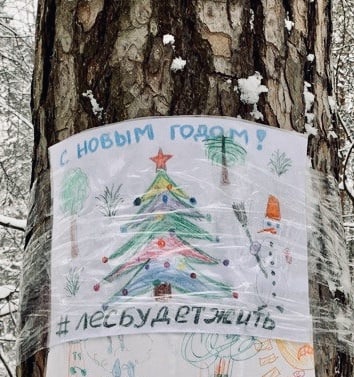 С НОВЫМ ГОДОМ!
#ЛЕСБУДЕТЖИТЬ